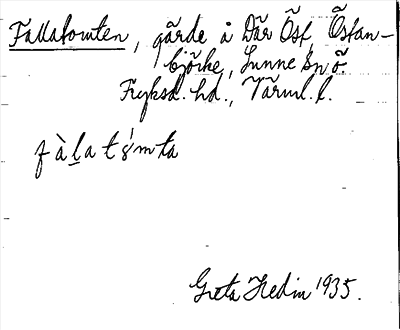 Fallatomten, gärde å Där Öst, Östan-
björke, Sunne sn ö.
Fryksd. hd., Värml. l.
fàlatómta
Greta Hedin 1935.